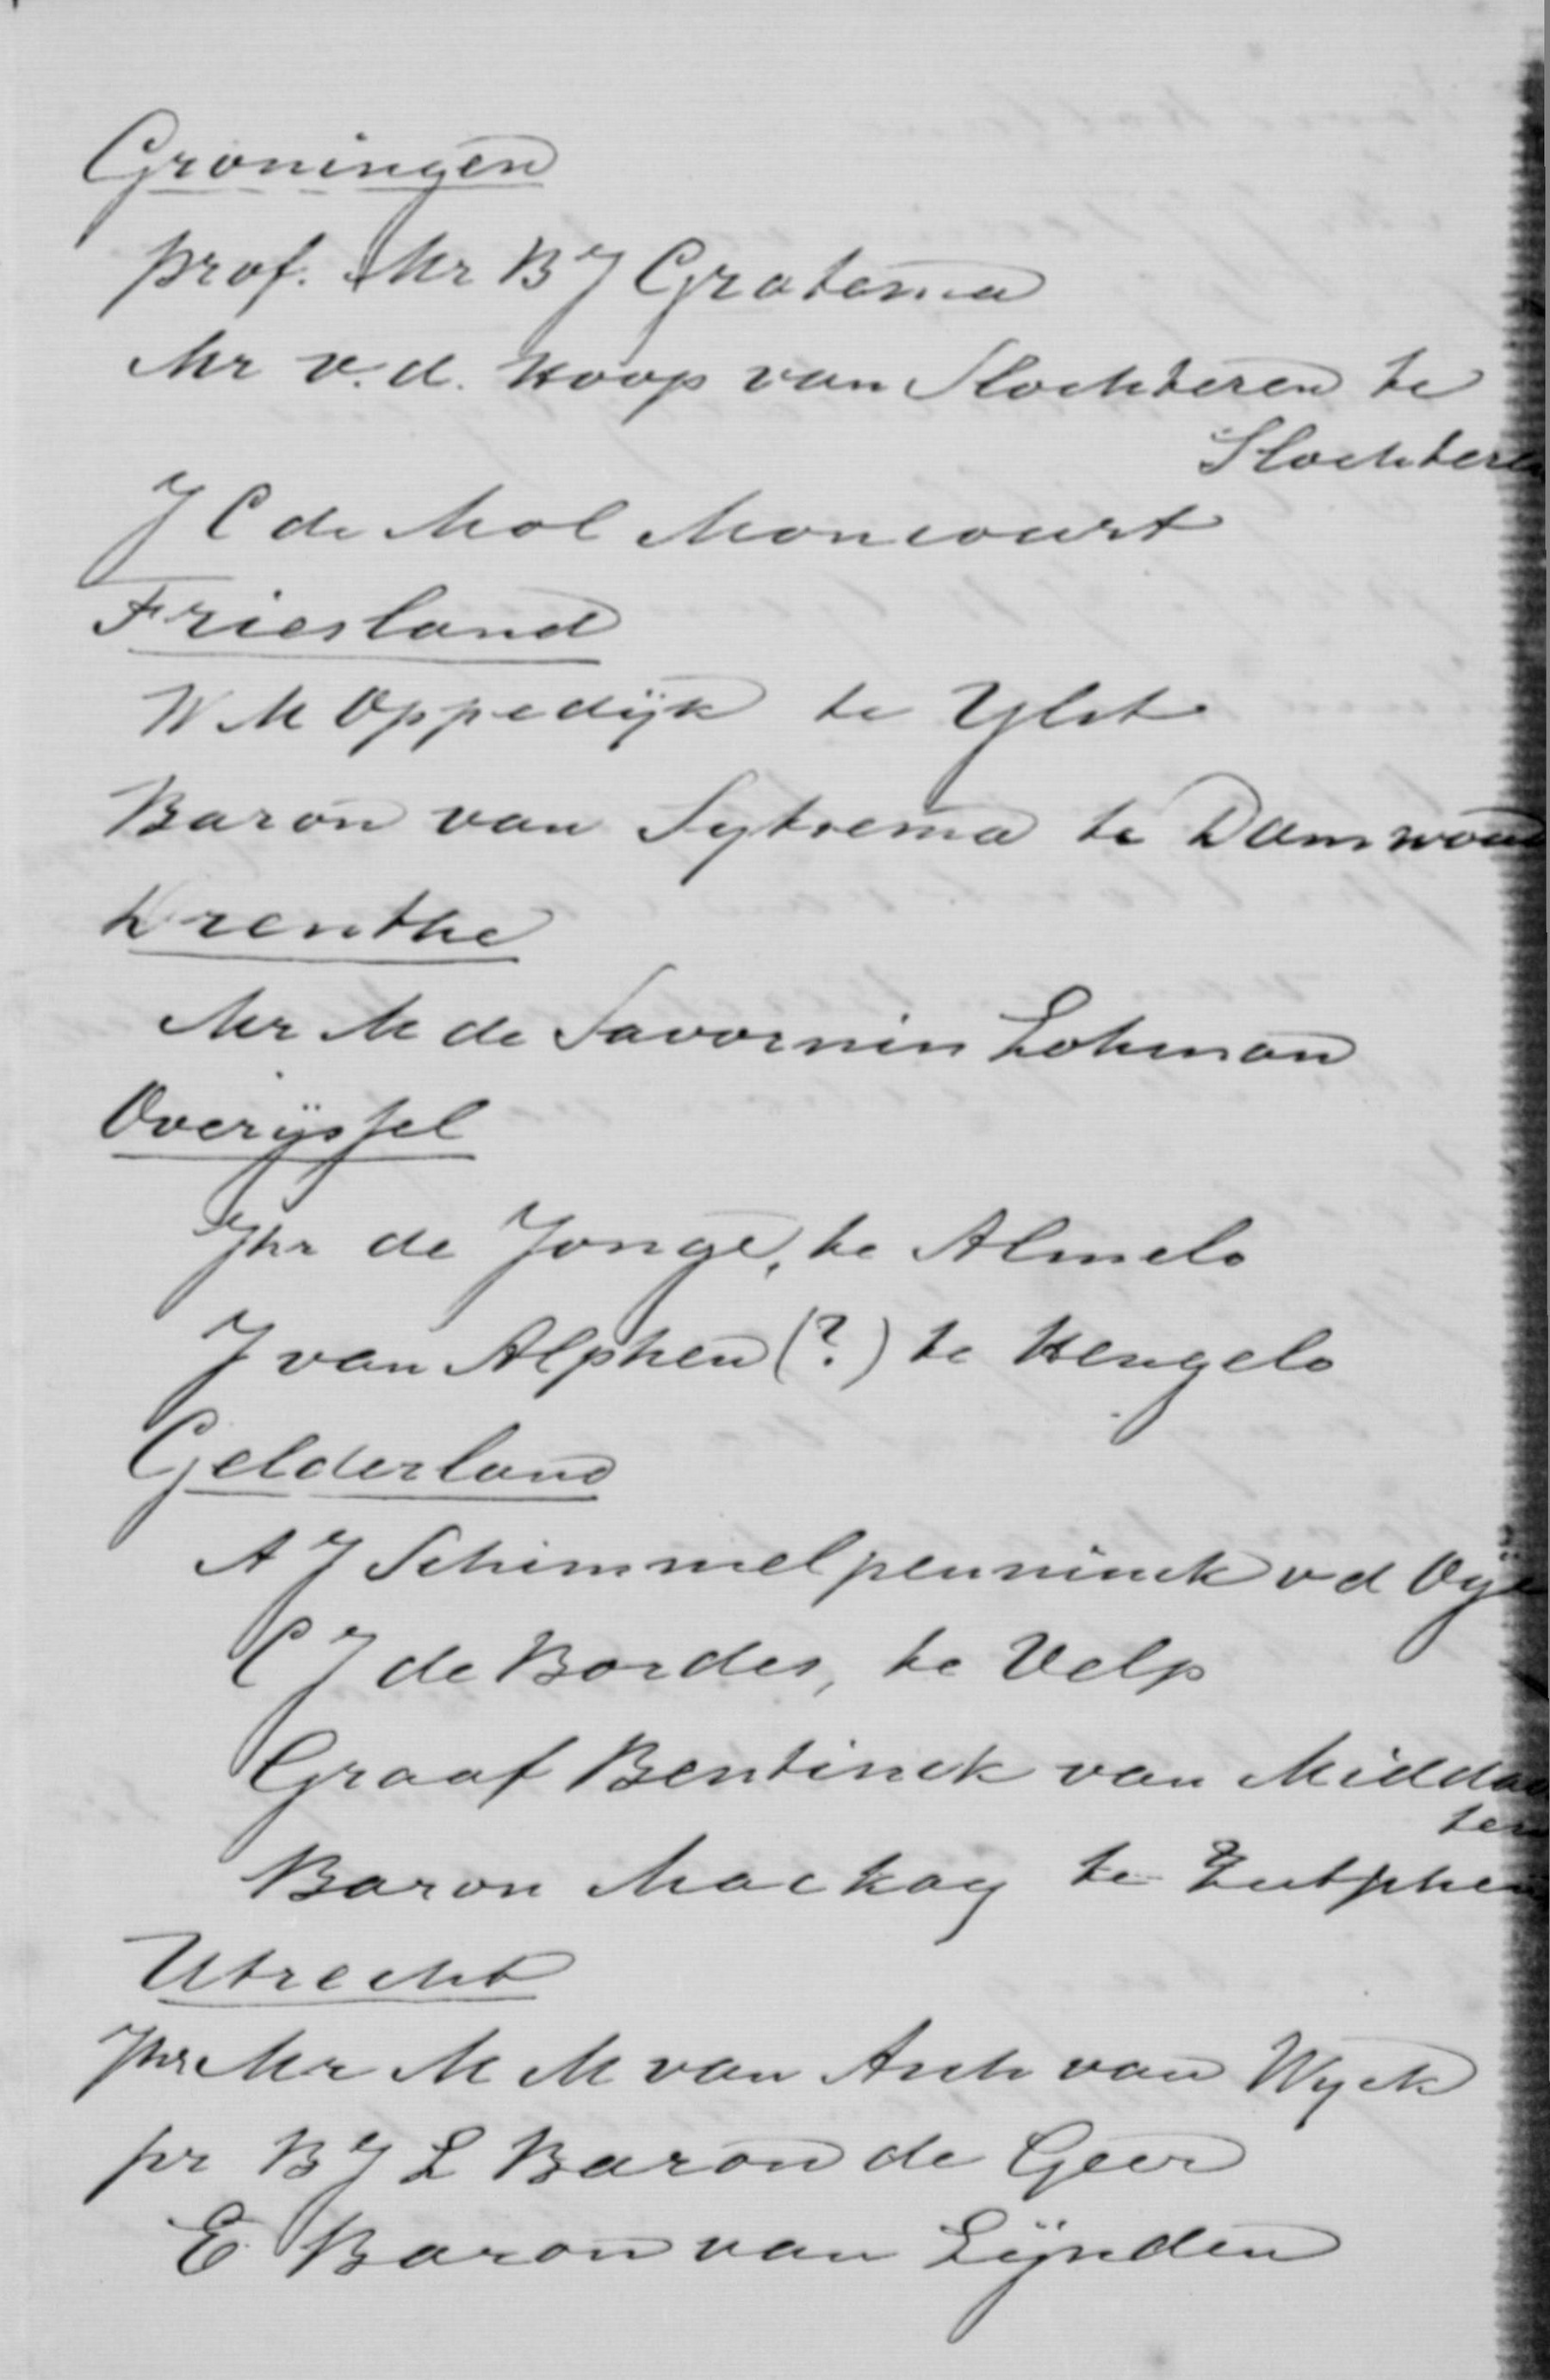 Groningen
prof. Mr B J Gratema
Mr v.d. Hoop van Slochteren te
Slochteren
J C de Mol Moncourt
Friesland
W M Oppedijk te Ylst
Baron van Sytzema te Damwoud
Drenthe
Mr M de Savornin Lohman
Overijssel
Jhr de Jonge, te Almelo
J van Alphen (?) te Hengelo
Gelderland
A J Schimmelpenninck v d Oije
C J de Bordes, te Velp
Graaf Bentinck van Middach
ten
Baron Mackay te Zutphen
Utrecht
Jhr Mr M M van Asch van Wyck
pr B J L Baron de Geer
E Baron van Lijnden